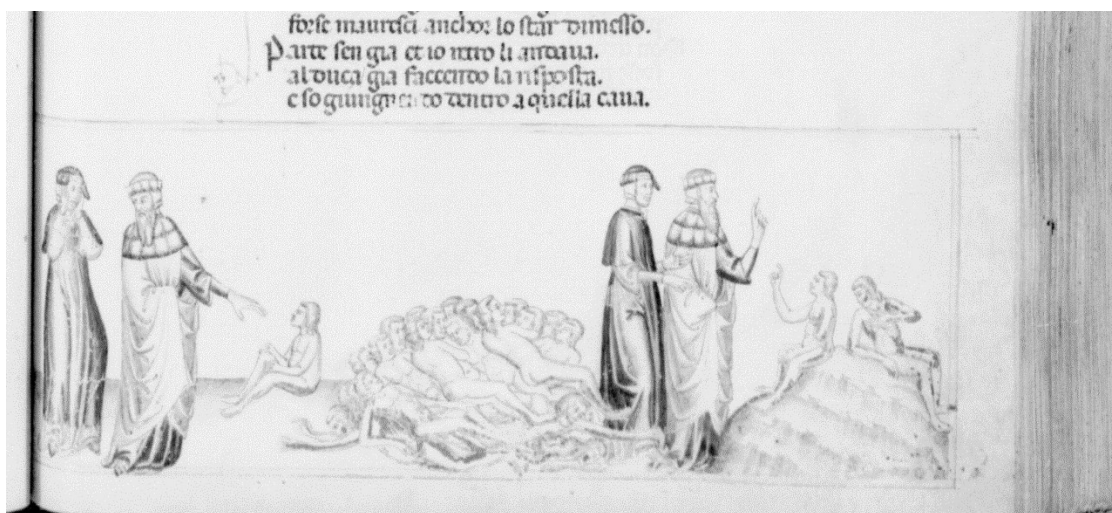 forse mauresci anchor lo star dimesso.
Parte sen gia et io retro li andaua.
al duca gia faccendo la risposta.
e sogiungnendo dentro a quella caua.